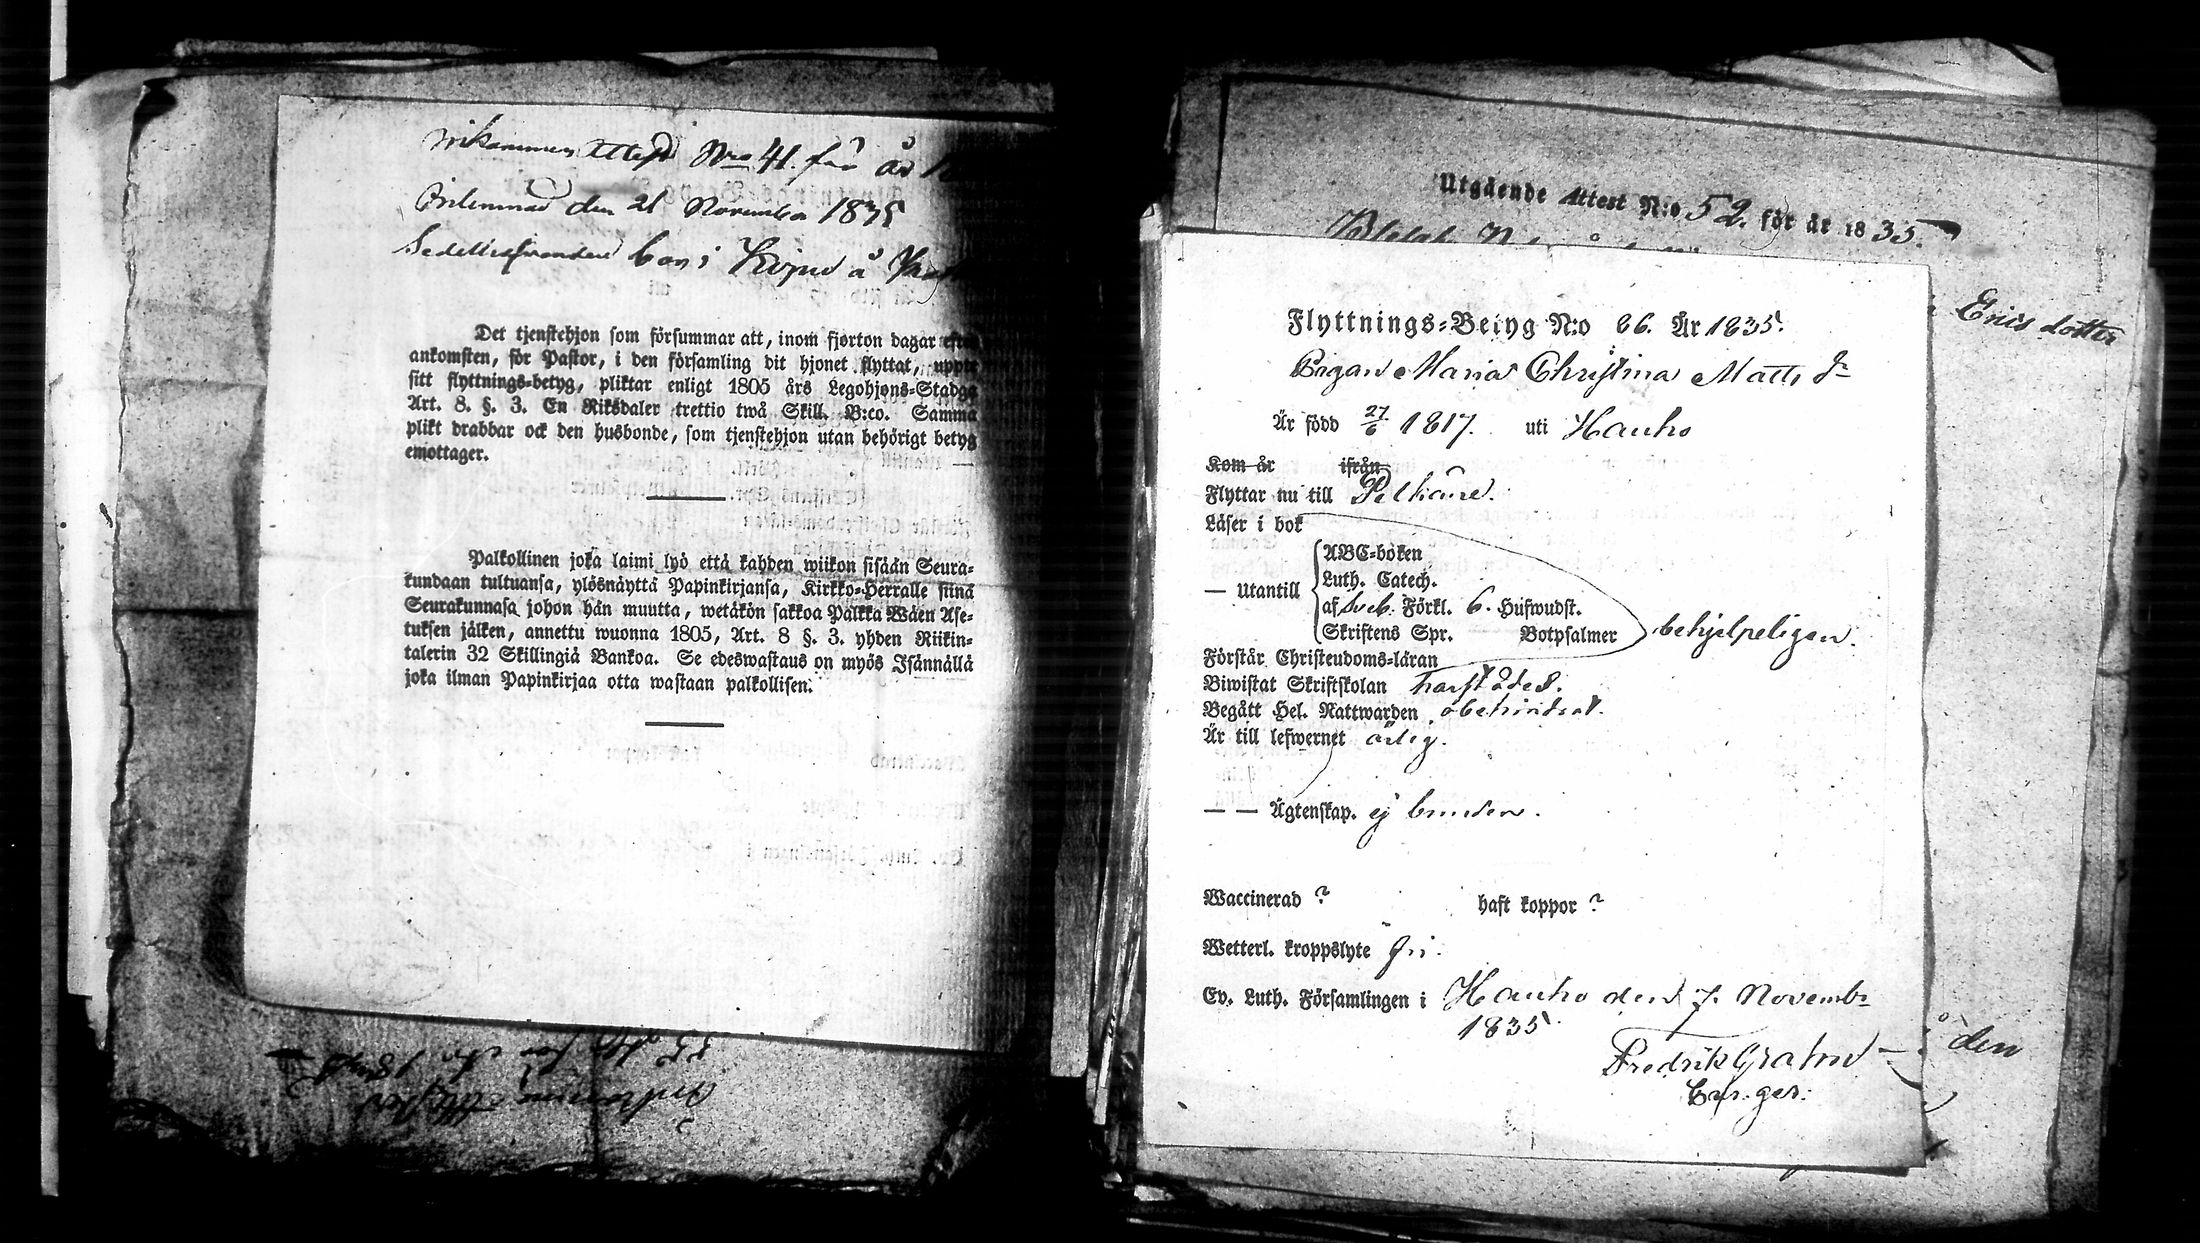 Inkommen Attest Nro 41. för år
Inlemnad den 21 November 1835
Sedelinnehafvanden bor i
Det tjenstehjon som försummar att, inom fjorton dagar efter
ankomsten, för Pastor, i den församling dit hjonet flyttat, uppte
sitt flyttnings-betyg, pliktar enligt 1805 års Legohjons-Stadga
Art. 8. §. 3. En Riksdaler trettio twå Skill. B:co. Samma
plikt drabbar ock den husbonde, som tjenstehjon utan behörigt betyg
emottager.
Palkollinen joka laimi lyö että kahden wiikon sisään Seura-
kundaan tultuansa, ylösnäyttä Papinkirjansa, Kirkko-Herralle siinä
Seurakunnasa johon hän muutta, wetäkön sakkoa Palkka Wäen Ase-
tuksen jälken, annettu wuonna 1805, Art. 8 §. 3. yhden Riikin-
talerin 32 Skillingiä Bankoa. Se edeswastaus on myös Isännällä
joka ilman Papinkirjaa otta wastaan palkollisen.
Utgående Attest N:o 52. för år 1835.
Erics dotter
Flyttnings-Betyg N:o 86. År 1835.
Pigan Maria Christina Matts dr
Är född 27/6 1817. uti Hauho
Kom år ifrån
Flyttar nu till Pelkäne.
Läser i bok
— Utantill
ABC-boken
Luth. Catech.
af Sveb. Förkl. 6. Hufwudst.
Skriftens Spr. Botpsalmer
behjelpeligen.
Förstår Christendoms-läran
Biwistat Skriftskolan
Begått Hel. Nattwarden obehindrat.
Är till lefwernet ärlig.
— — Ägtenskap. ej bunden.
Waccinerad ? haft koppor ?
Wetterl. kroppslyte fri.
Ev. Luth. Församlingen i Hauho den 7. Novembr
1835
Fredrik Grahn
den